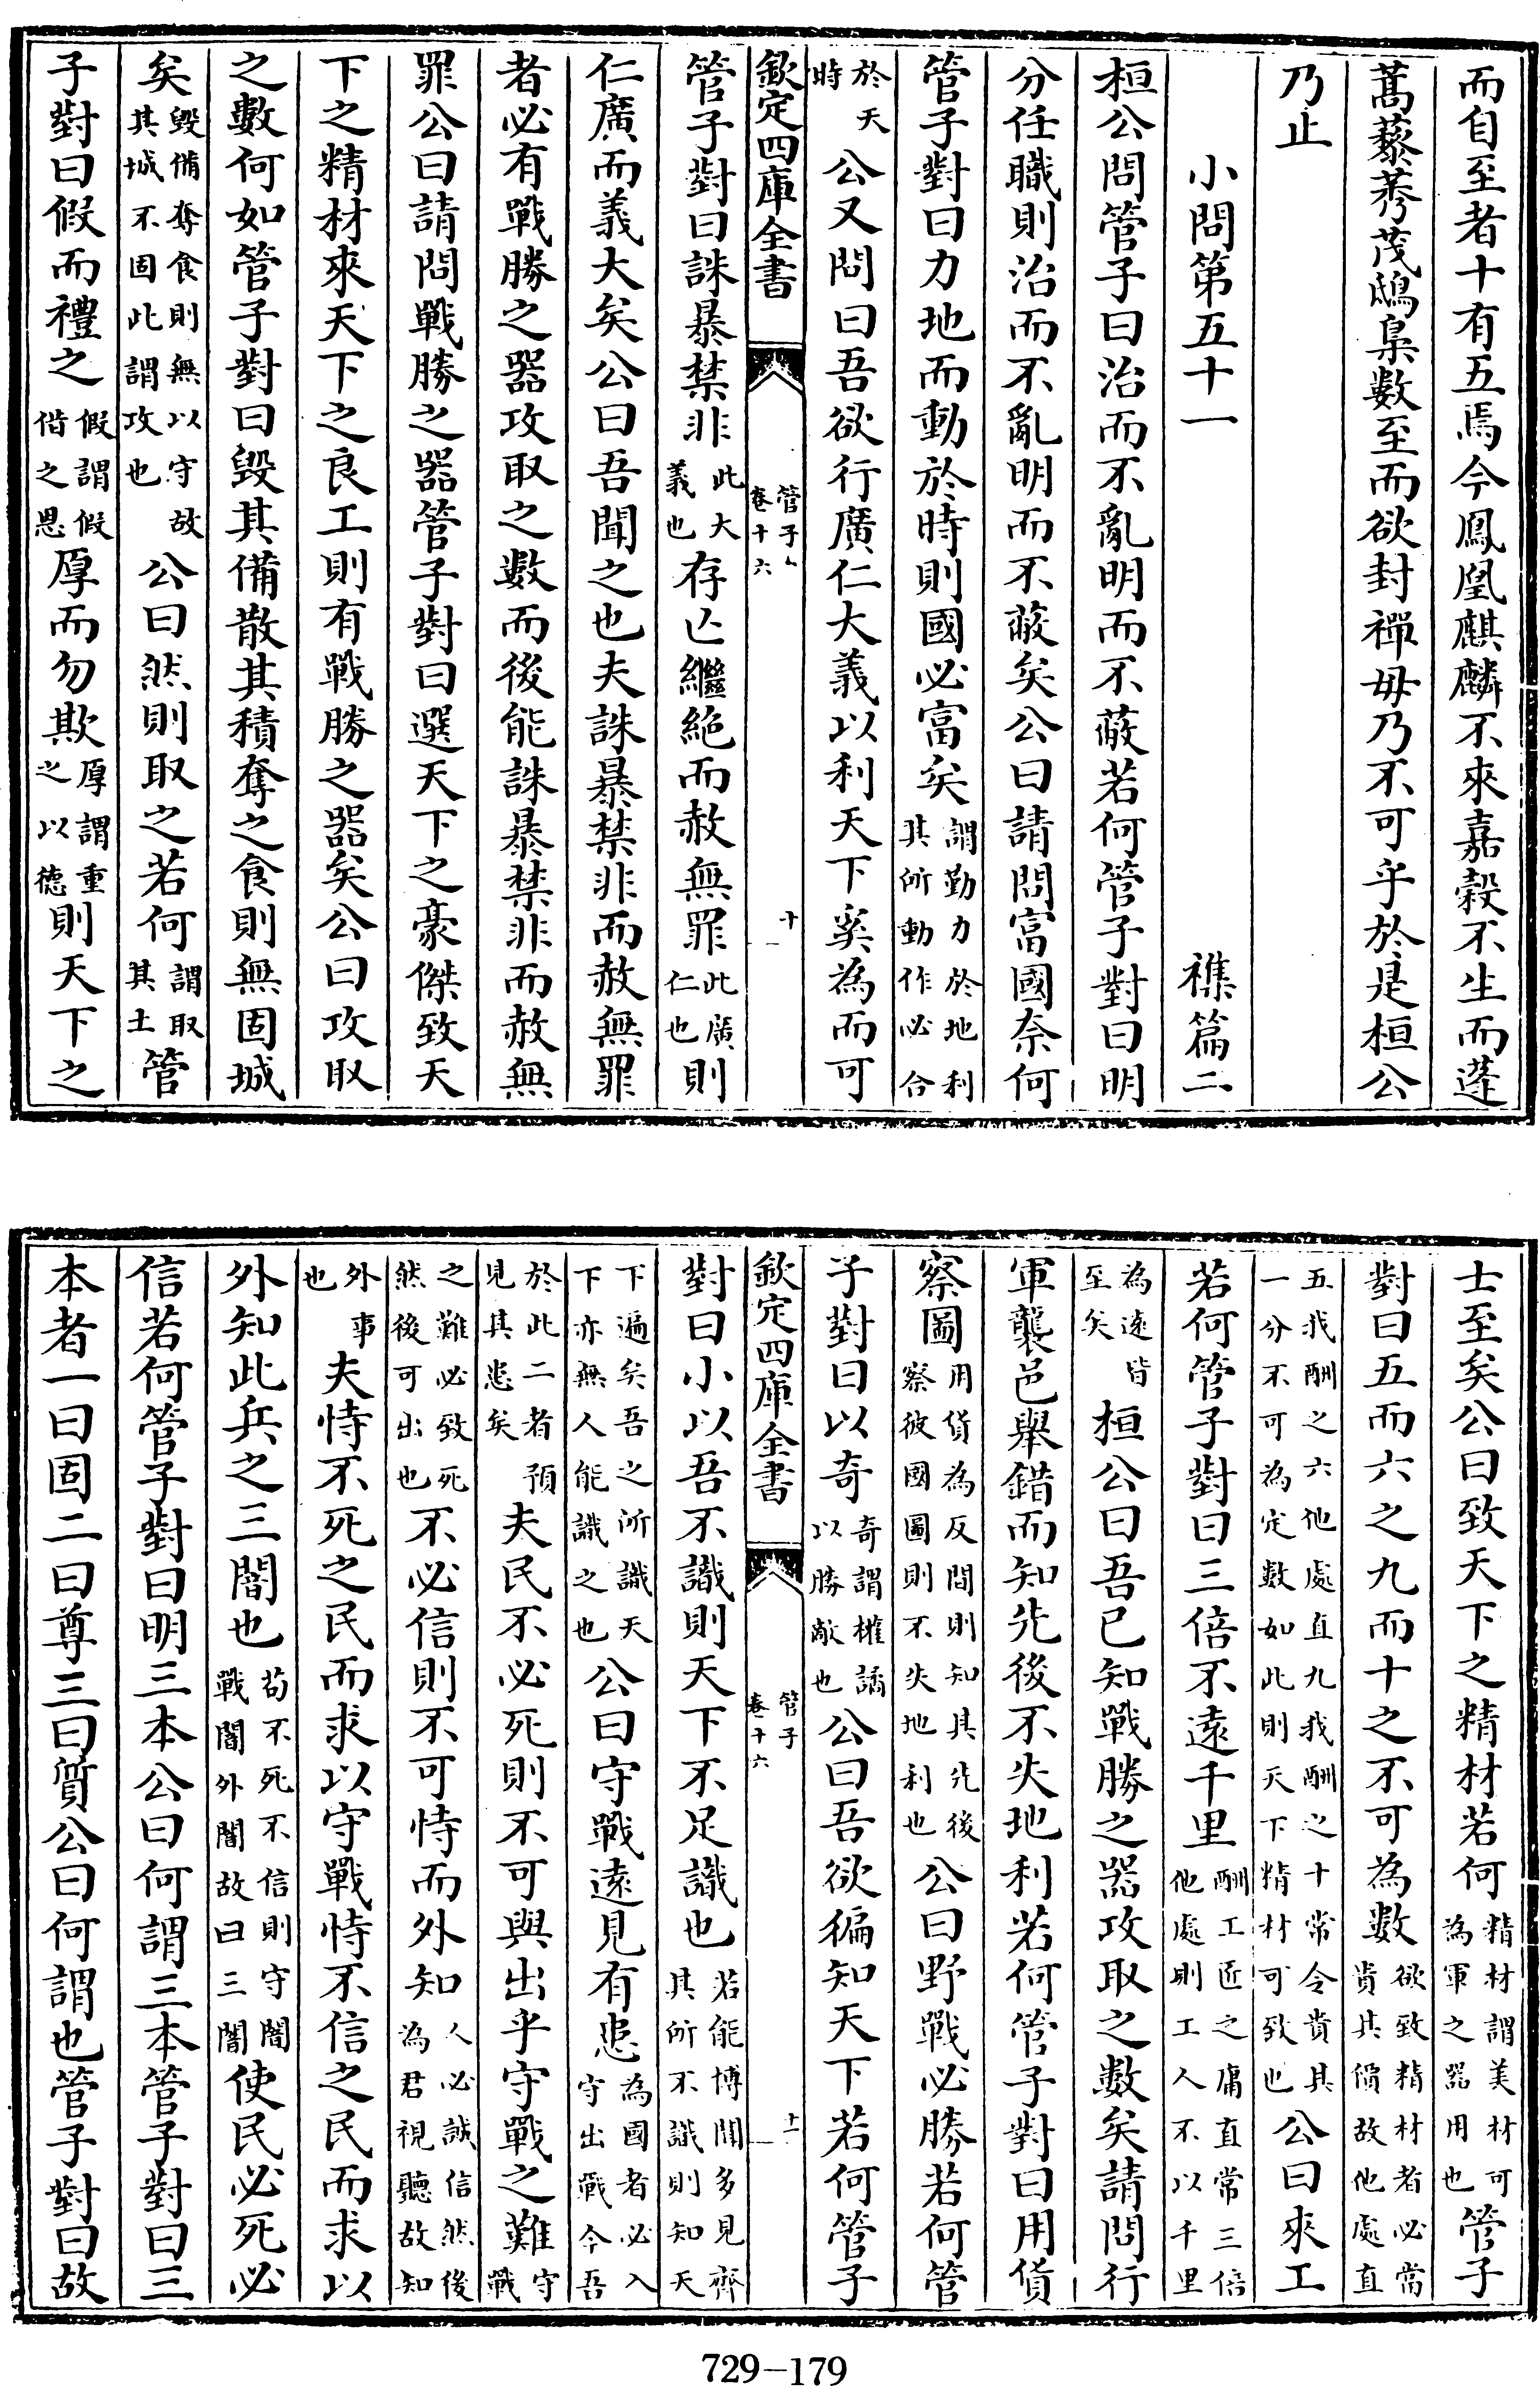 而自至者十有五焉今鳳凰麒麟不來嘉穀不生而蓬
蒿藜莠茂鴟梟數至而欲封禪毋乃不可乎於是桓公
乃止
小問第五十一 襍篇二
桓公問管子曰治而不亂明而不蔽若何管子對曰明
分任職則治而不亂明而不蔽矣公曰請問富國奈何
管子對曰力地而動於時則國必富矣謂勤力於地利其所動作必合
於天時公又問曰吾欲行廣仁大義以利天下奚為而可
欽定四庫全書 管子 卷十六 十一
管子對曰誅暴禁非此大義也存亾繼絶而赦無罪此廣仁也則
仁廣而義大矣公曰吾聞之也夫誅暴禁非而赦無罪
者必有戰勝之器攻取之數而後能誅暴禁非而赦無
罪公曰請問戰勝之器管子對曰選天下之豪傑致天
下之精材來天下之良工則有戰勝之器矣公曰攻取
之數何如管子對曰毀其備散其積奪之食則無固城
矣毀備奪食則無以守故其城不固此謂攻也公曰然則取之若何謂取其士管
子對曰假而禮之假謂假借之恩厚而勿欺厚謂重之以德則天下之
士至矣公曰致天下之精材若何精材謂美材可為軍之器用也管子
對曰五而六之九而十之不可為數欲致精材者必當貴其價故他處直
五我酬之六他處直九我酬之十常令貴其一分不可為定數如此則天下精材可致也公曰來工
若何管子對曰三倍不遠千里酬工匠之庸直常三倍他處則工人不以千里
為遠皆至矣桓公曰吾已知戰勝之器攻取之數矣請問行
軍襲邑舉錯而知先後不失地利若何管子對曰用貨
察圖用貨為反間則知其先後察彼國圖則不失地利也公曰野戰必勝若何管
子對曰以奇奇謂權譎以勝敵也公曰吾欲徧知天下若何管子
欽定四庫全書 管子 卷十六 十二
對曰小以吾不識則天下不足識也若能博聞多見齊其所不識則知天
下遍矣吾之所識天下亦無人能識之也公曰守戰遠見有患為國者必入守出戰今吾
於此二者預見其患矣夫民不必死則不可與出乎守戰之難守戰
之難必致死然後可出也不必信則不可恃而外知人必誠信然後為君視聽故知
外事也夫恃不死之民而求以守戰恃不信之民而求以
外知此兵之三闇也苟不死不信則守闇戰闇外闇故曰三闇使民必死必
信若何管子對曰明三本公曰何謂三本管子對曰三
本者一曰固二曰尊三曰質公曰何謂也管子對曰故
729-179